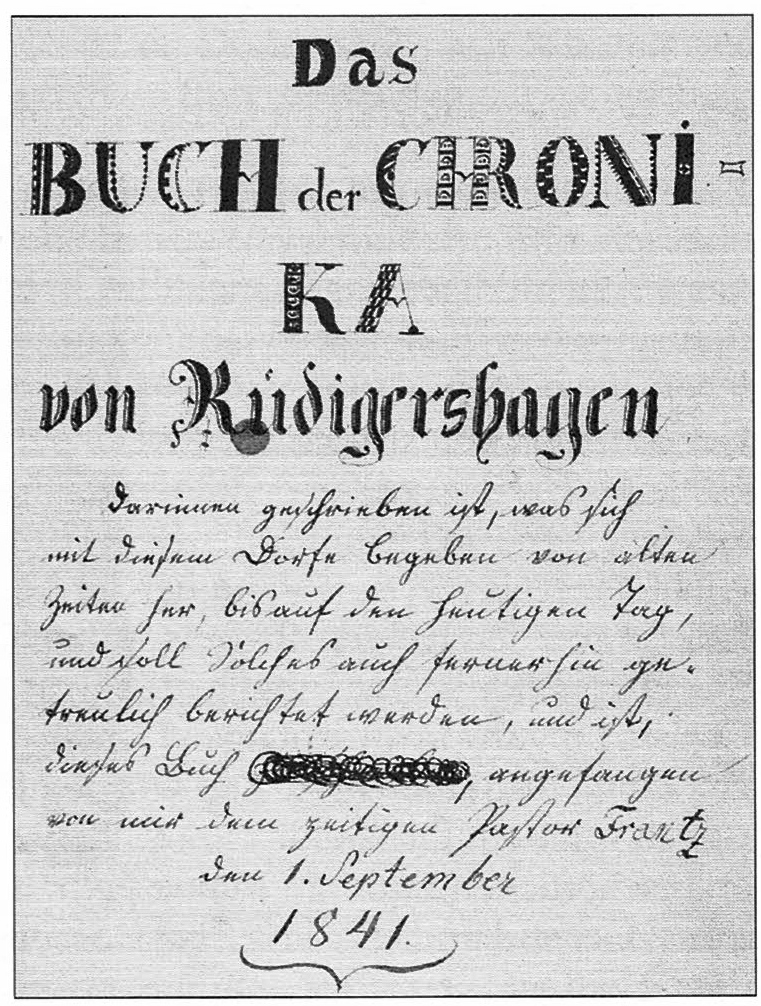 Das
BUCH der CHRONI-
KA
von Rüdigershagen
darinnen geschrieben ist, was sich
mit diesem Dorfe begeben von alten
Zeiten her, bis auf den heutigen Tag,
und soll Solches auch fernerhin ge-
treulich berichtet werden, und ist,
dieses Buch, angefangen
von mir dem zeitigen Pastor Frantz
den 1. September
1841.